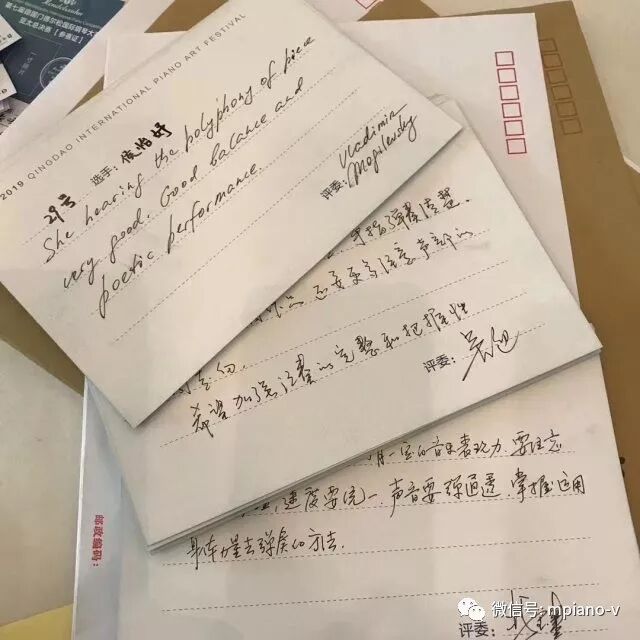 第七届德国门德尔松国际钢琴大
亚太总决赛【参赛证】
2019 QINGDAO INTERNATIONAL PIANO ART FESTIVAL
29号 选手：侯怡妤
She hearing the polyphony of piece
very good. Good balance and
poetic performance.
评委：Vladimir
Mogilevsky
手指弹奏清楚.
还要更多注意声部的
希望加强演奏的完整和把握性
评委：
有一定的音乐表现力,要注意
速度要统一,声音要弹通透,掌握运用
身体力量去弹奏的方法.
评委：
邮政编码：
微信号: mpiano-v